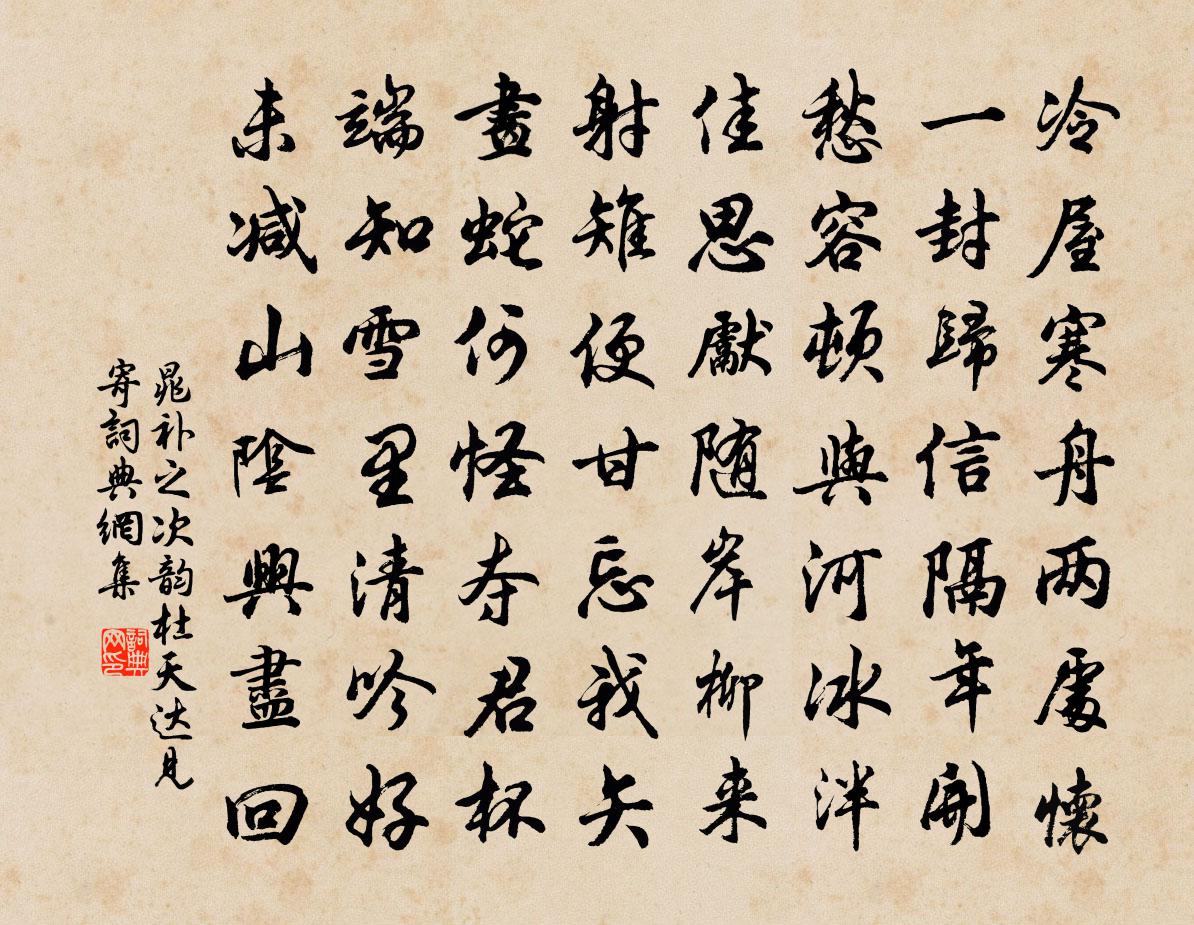 冷屋寒舟两處懷
一封歸信隔年開
愁容頓與河冰泮
佳思獻随岸柳来
射雉便甘忘我矢
畫蛇何怪夺君杯
端知雪里清吟好
未减山陰興盡回
晁补之次韵杜天达见
寄詞典網集
詞典
网印